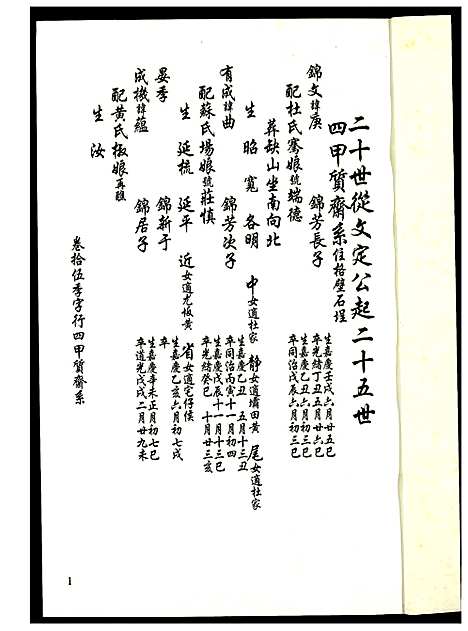 二十世從文定公起二十五世
四甲質齋系住格壁石埕
錦文諱庚 錦芳長子 生嘉慶壬戌六月廿五巳
卒光緒丁丑五月廿六巳
配杜氏騫娘號端德 生嘉慶乙丑六月初三巳
卒同治戊辰六月初三巳
葬缺山坐南向北
生 昭 寬 各明 中女適杜家 静女適壩田黄 尾女適杜家
有成諱曲 錦芳次子 生嘉慶乙丑五月十三丑
卒同治丙寅十一月初四
配蘇氏場娘號莊慎 生嘉慶戊辰十一月十三巳
卒光緒癸巳十月廿三亥
生 延梳 延平 近女適尤恢黄 省女適宅仔侯
晏季 錦新子 生嘉慶乙亥六月初七戌
成機諱蘊 錦居子 生嘉慶辛未正月初七巳
卒道光戊戌二月廿九未
配黄氏极娘再醮
生 汝
卷拾伍季字行四甲質齋系
1